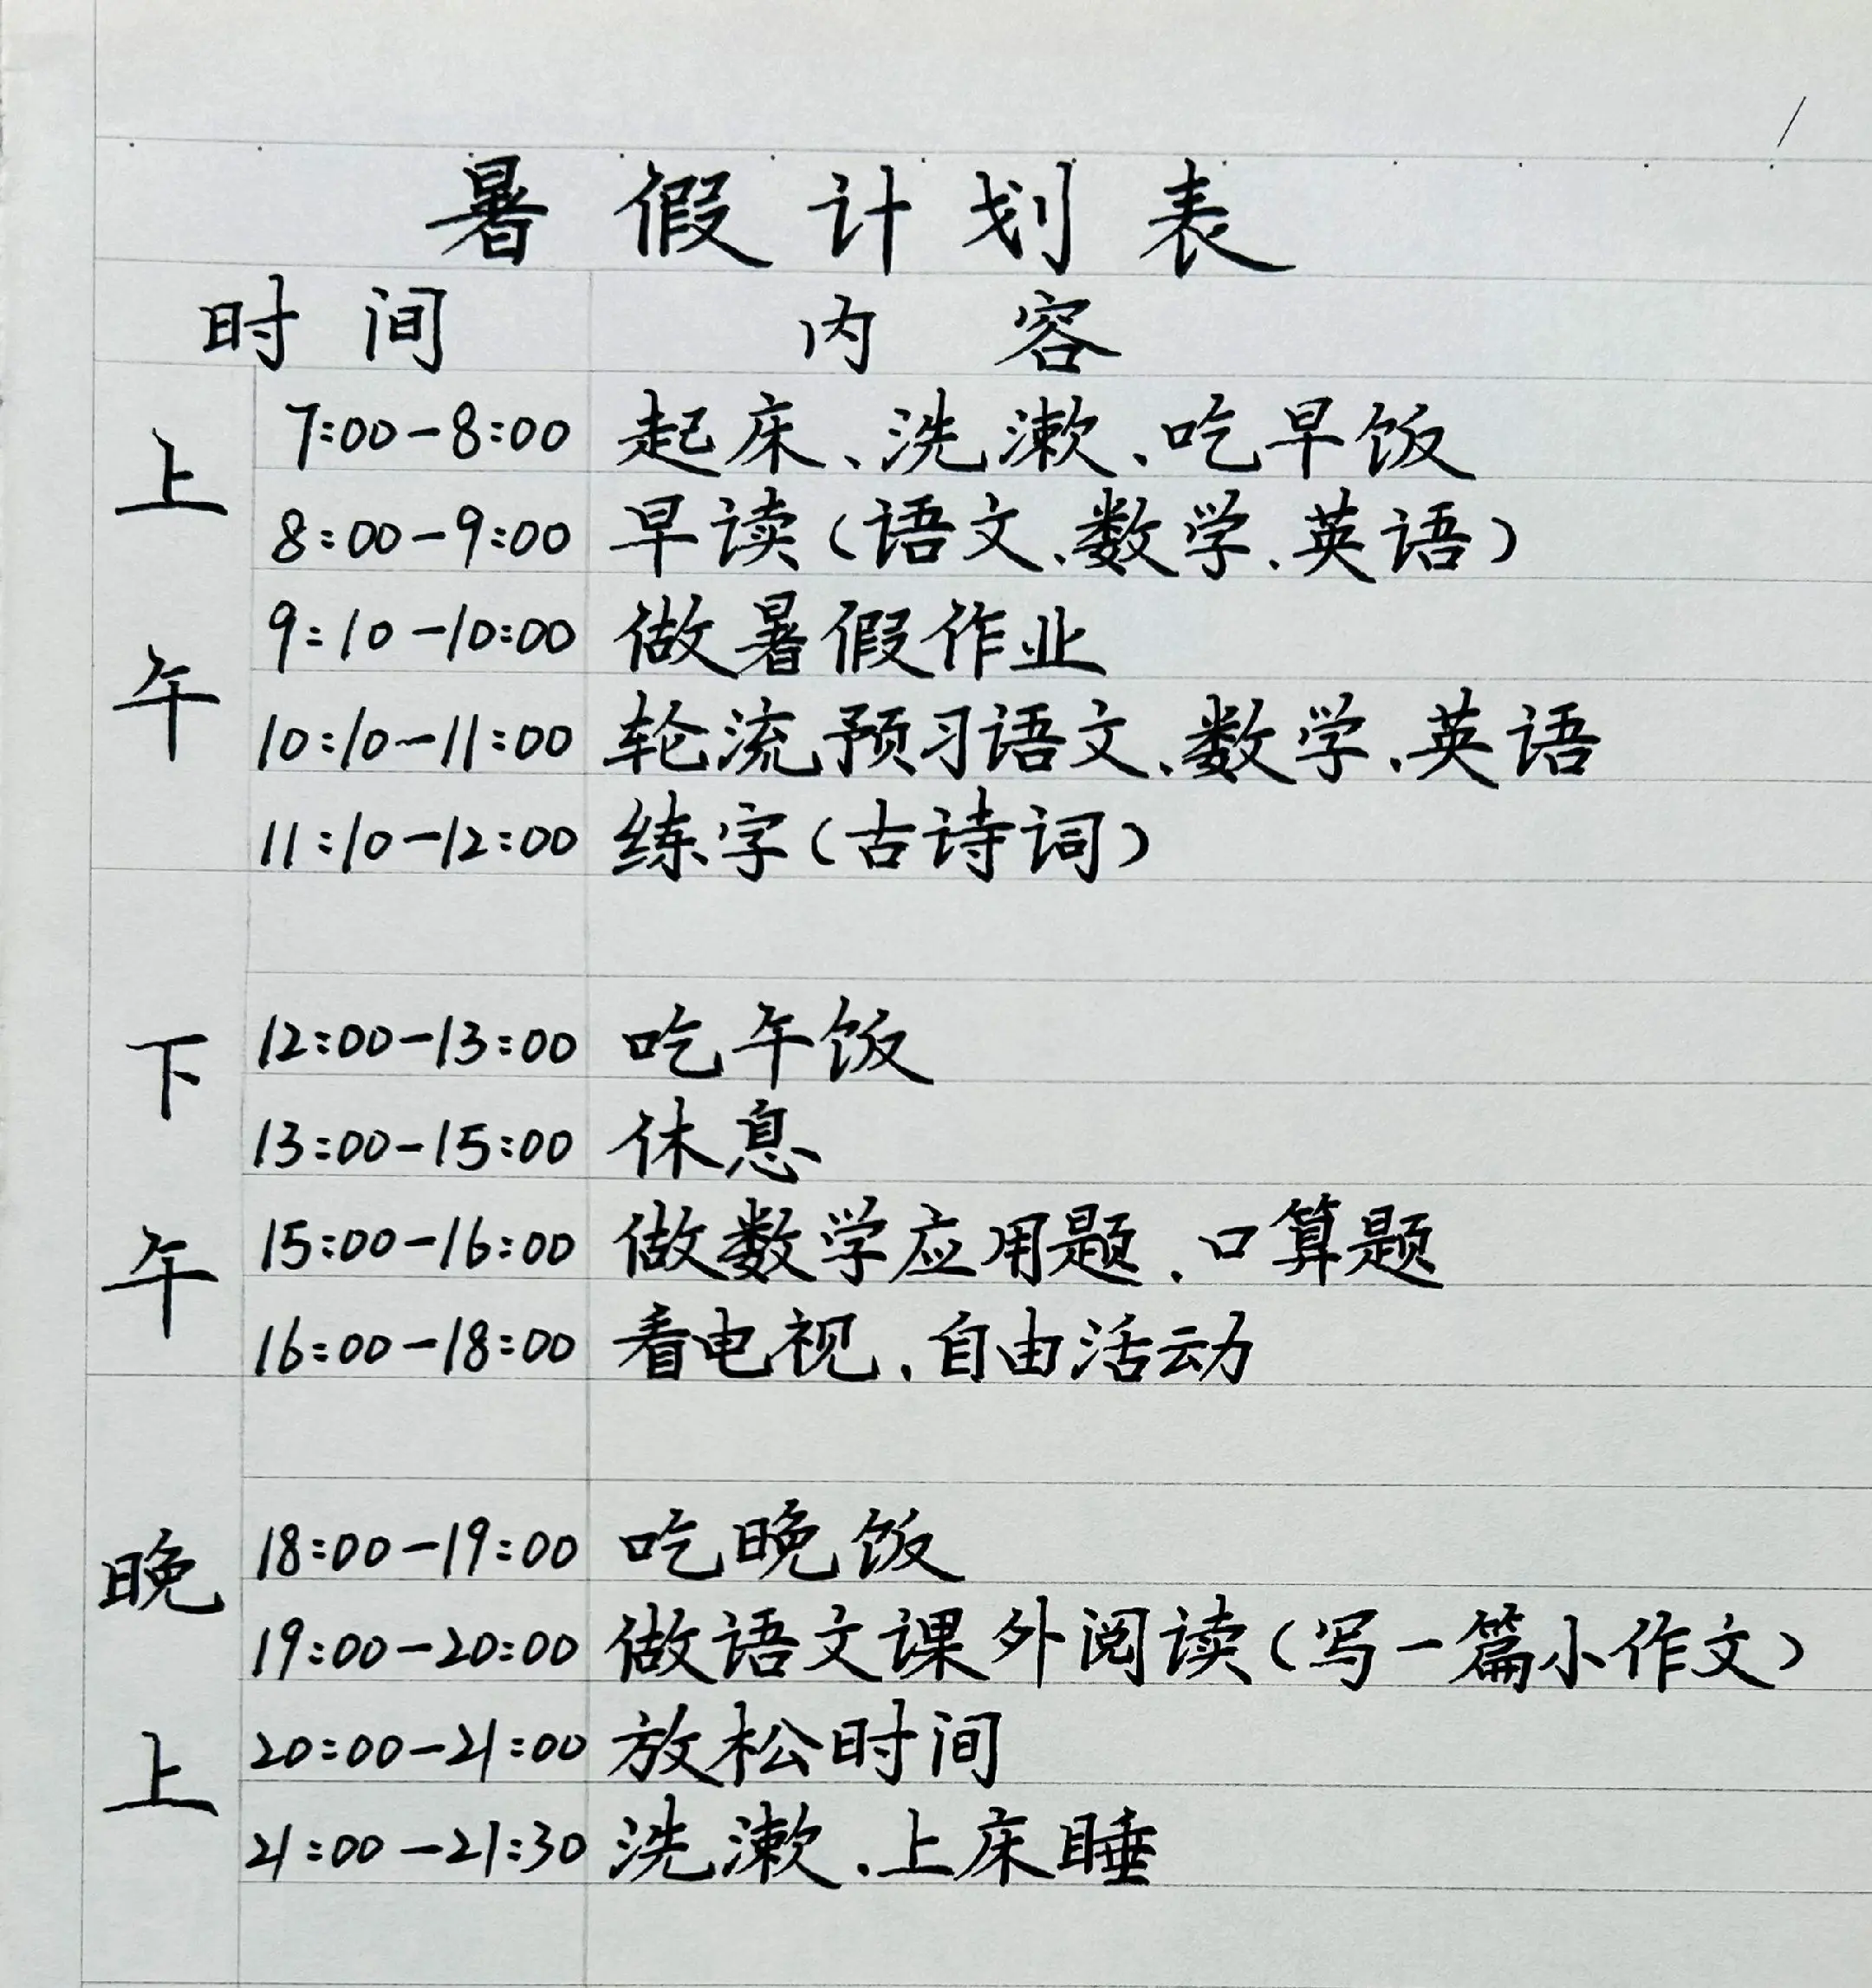 暑假计划表
时间 内容
上午
7:00-8:00 起床、洗漱、吃早饭
8:00-9:00 早读(语文、数学、英语)
9:10-10:00 做暑假作业
10:10-11:00 轮流预习语文、数学、英语
11:10-12:00 练字(古诗词)
下午
12:00-13:00 吃午饭
13:00-15:00 休息
15:00-16:00 做数学应用题、口算题
16:00-18:00 看电视、自由活动
晚上
18:00-19:00 吃晚饭
19:00-20:00 做语文课外阅读(写一篇小作文)
20:00-21:00 放松时间
21:00-21:30 洗漱、上床睡